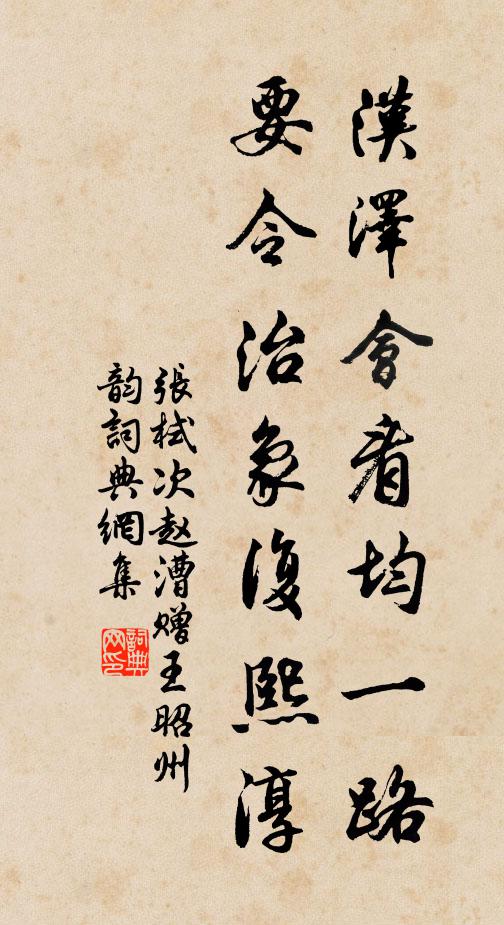 漢澤會看均一路
要令治象復熙淳
張栻次赵漕赠王昭州
韵詞典網集
詞典网印